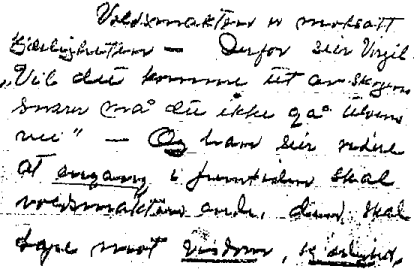 Voldsmakten er motsatt
Kjærligheten — Derfor sier Virgil
„Vil du komme ut av skogen
snarere må du ikke gå ulvens
vei" — Og han sier videre
at engang i fremtiden skal
voldsmakten ende, den skal
tape mot visdom, kjærlighet,